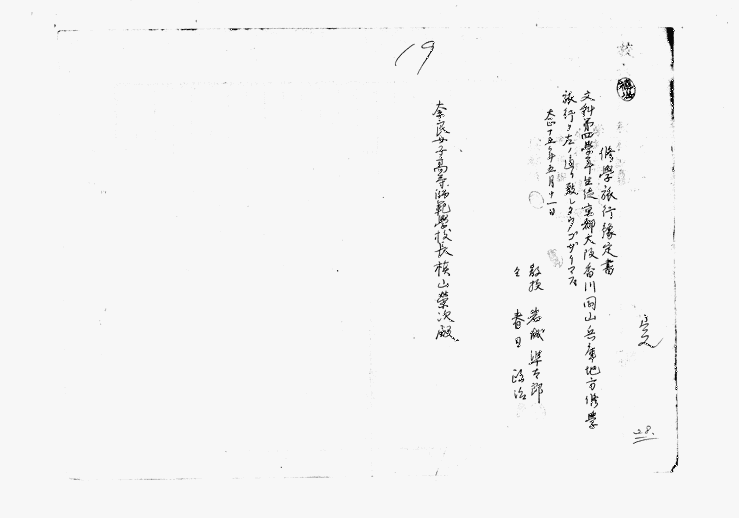 修學旅行豫定書
文科第四學年生徒京都大阪香川岡山兵庫地方修學
旅行ヲ左ノ通リ致シタウゴザイマス
大正十五年五月十一日
教授 岩城準太郎
仝 春日政治
奈良女子高等師範學校長槇山榮次殿
19
28.